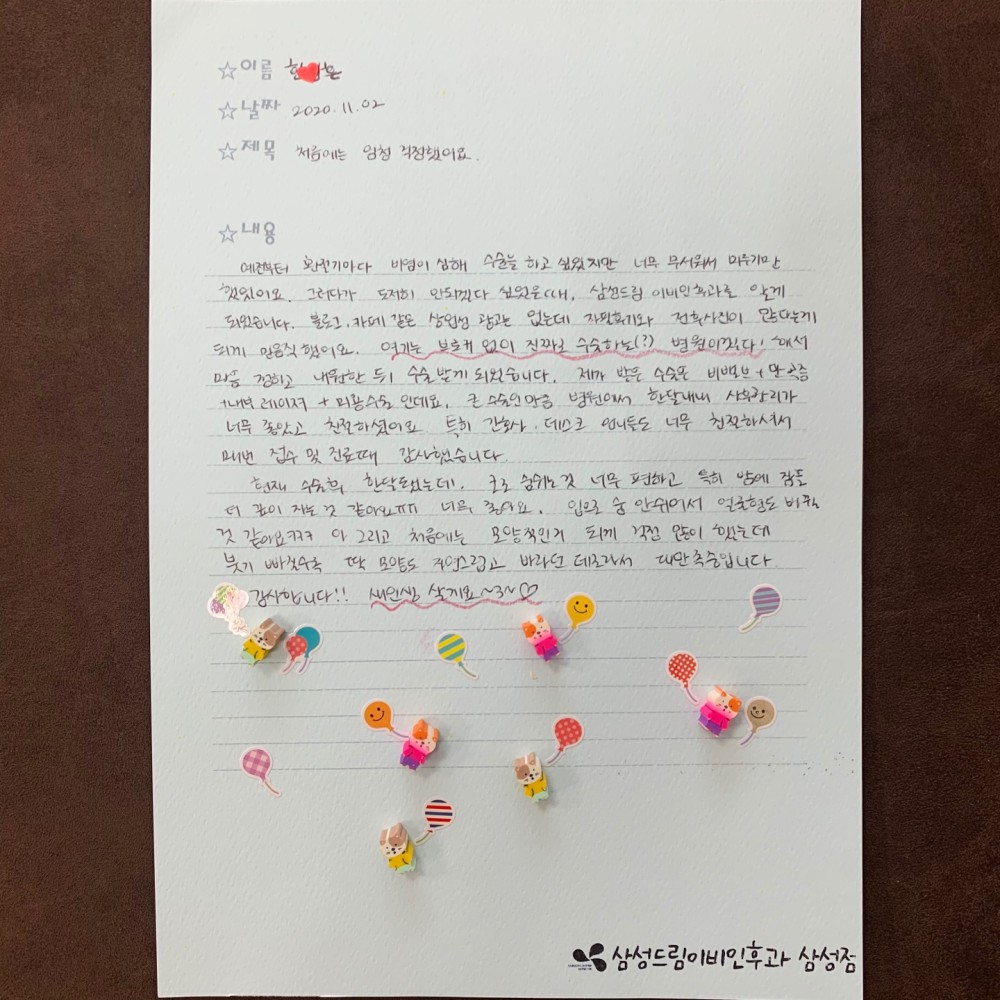 ☆이름
☆날짜 2020.11.02
☆제목 처음에는 엄청 걱정했어요.
☆내용
예전부터 환절기마다 비염이 심해 수술을 하고 싶었지만 너무 무서워서 미루기만
했었어요. 그러다가 도저히 안되겠다 싶었을때, 삼성드림 이비인후과를 알게
되었습니다. 블로그, 카페 같은 상업성 광고는 없는데 자필후기와 전후사진이 많다는게
되게 믿음직했어요. 여기는 브로커 없이 진짜로 수술하는(?) 병원이겠다! 해서
마음 정하고 내원한 뒤 수술받게 되었습니다. 제가 받은 수술은 비밸브+만곡증
+내녀 레이저 + 미용수술 인데요. 큰 수술인만큼 병원에서 한달내내 사후관리가
너무 좋았고 친절하셨어요 특히 간호사, 데스크 언니들도 너무 친절하셔서
매번 접수 및 진료때 감사했습니다.
현재 수술후 한달됐는데, 코로 숨쉬는것 너무 편하고 특히 밤에 잠들
더 깊이 자는 것 같아요ㅠㅠ 너무 좋아요. 입으로 숨 안쉬어서 얼굴형도 바뀌는
것 같아요ㅋㅋㅋ 아 그리고 처음에는 모양적인거 되게 걱정 많이 했는데
붓기 빠질수록 딱 모양도 자연스럽고 바라던 대로라서 대만족중입니다
감사합니다!! 새인생 살게요~3~♡
삼성드림이비인후과 삼성점